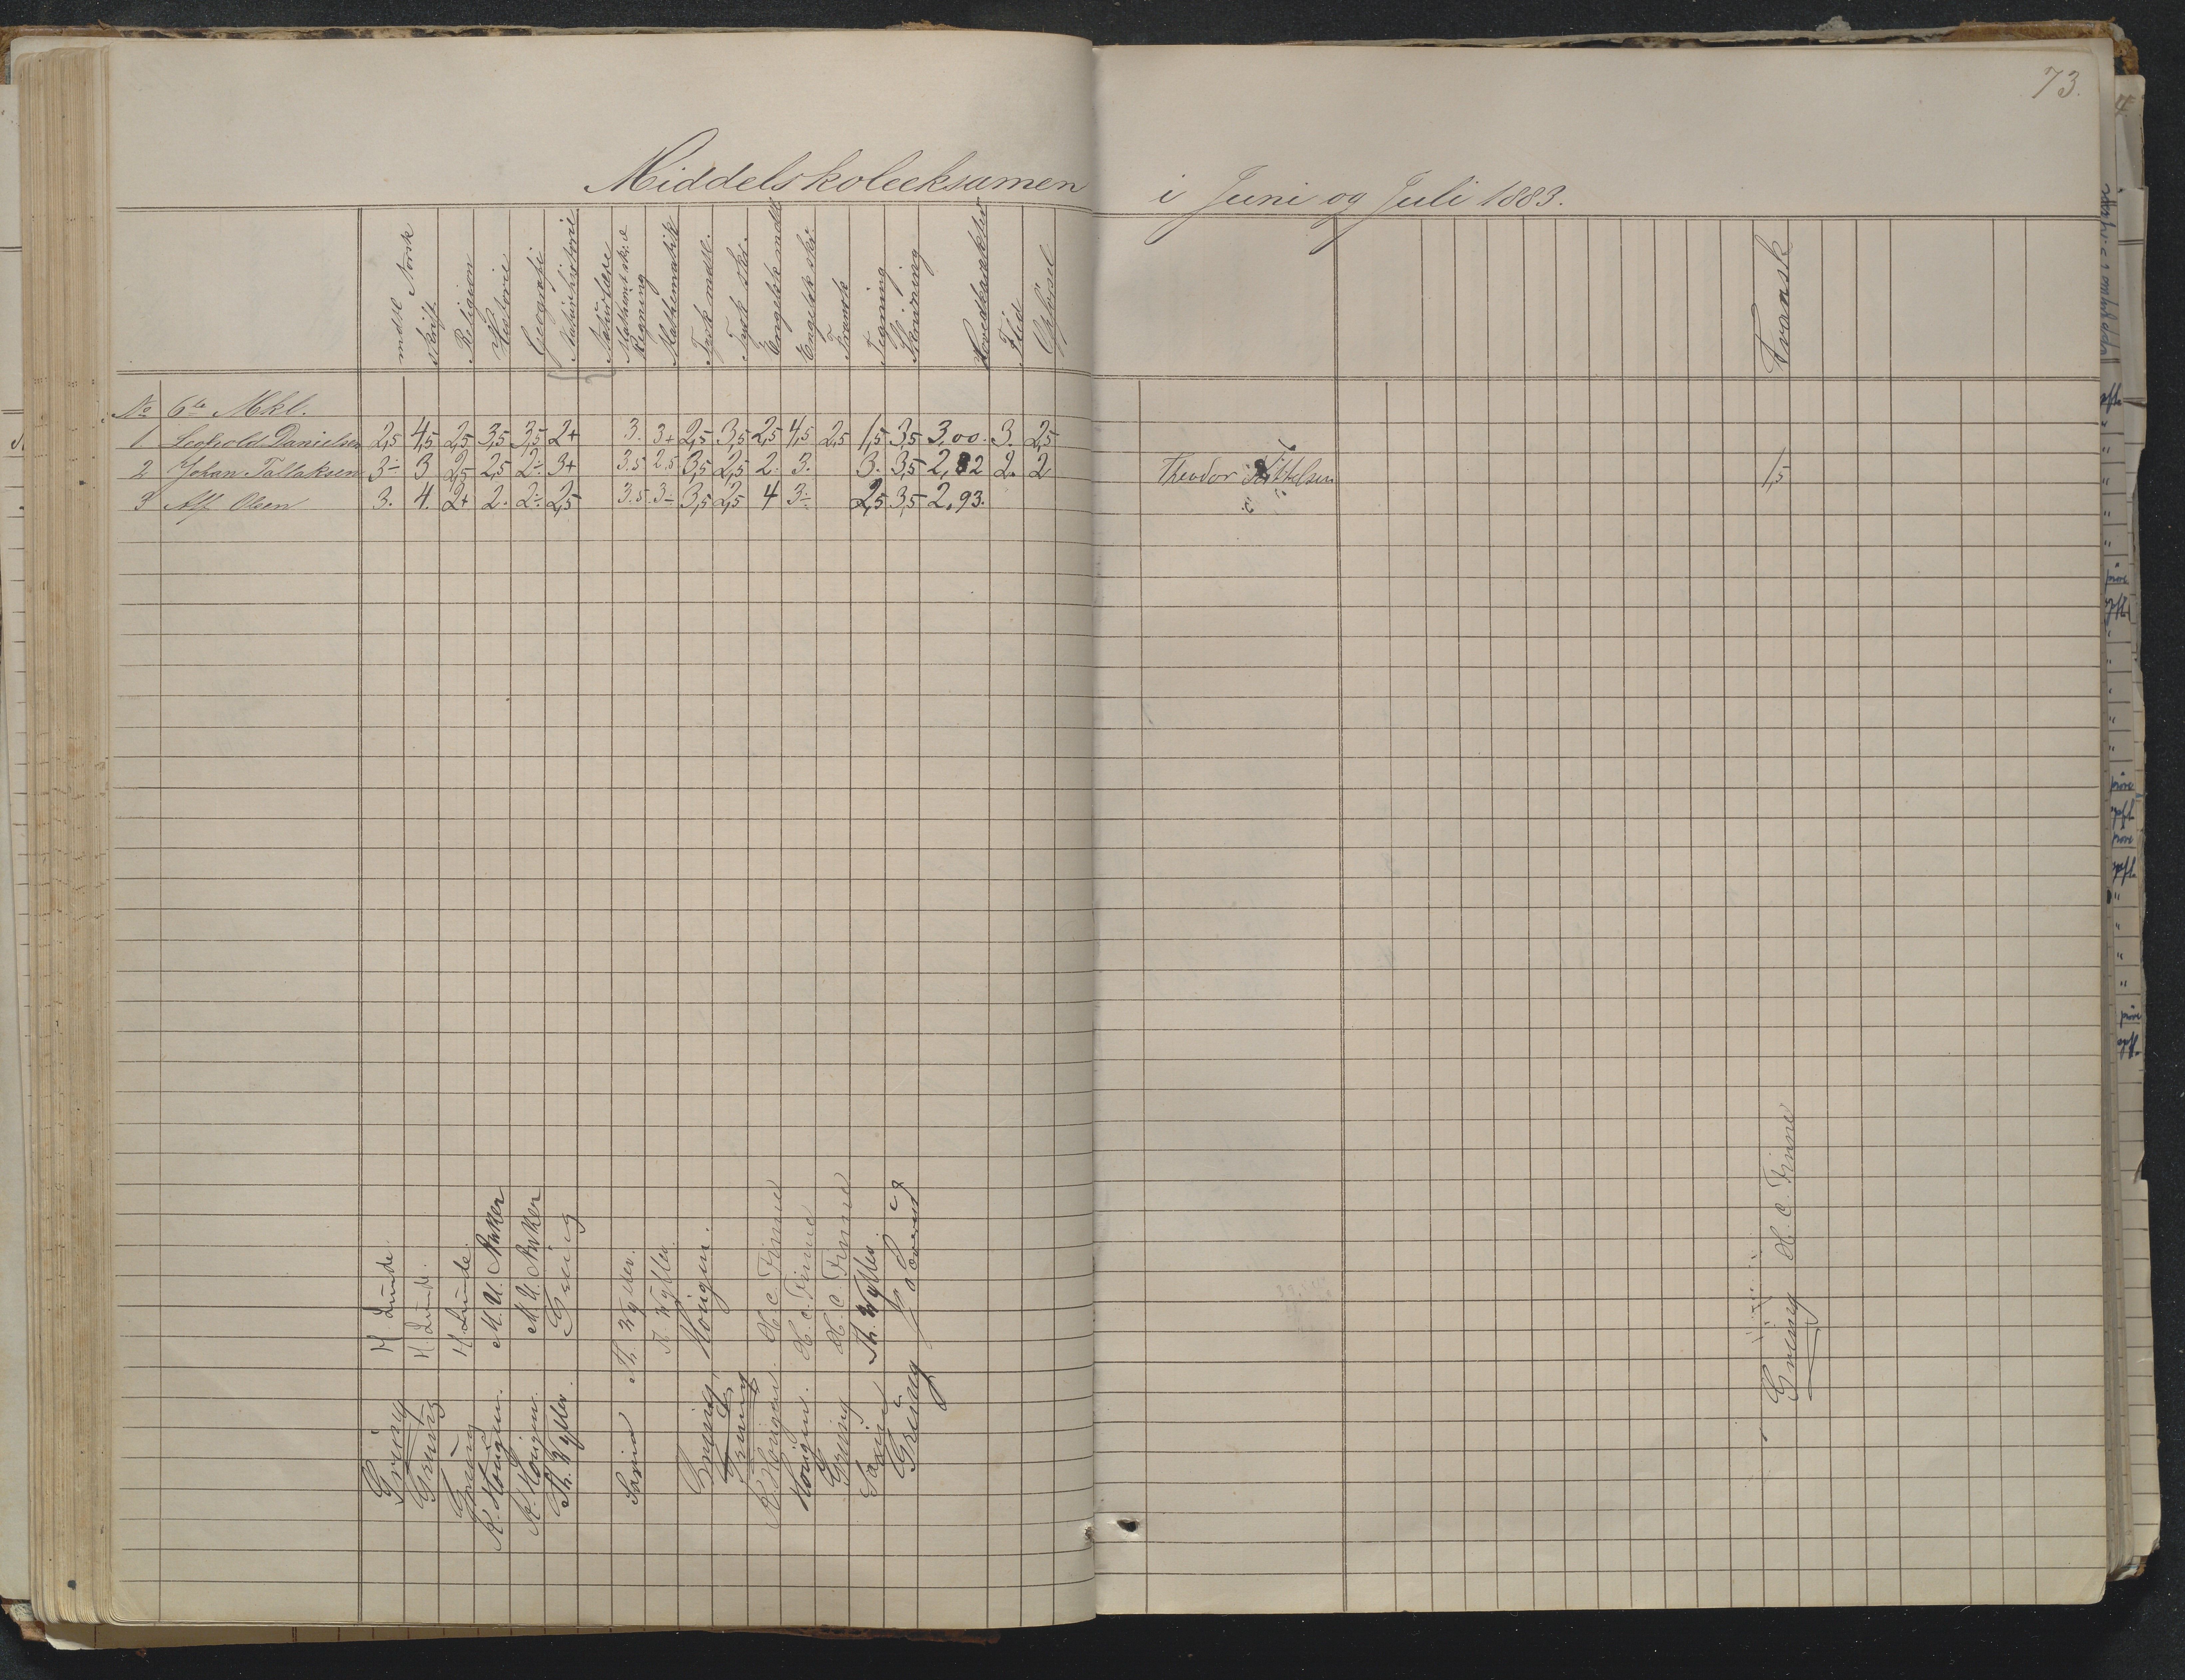 73.
Middelskoleeksamen i Juni og Juli 1883.
mdtl Norsk
skrift.
Religion
Historie
Geografi
Naturhistorie
Naturlære
Mathemat. skr. e
Regning
Mathematik
Tysk mdtl.
Tysk skr.
Engelsk mdtl
Engelsk skr.
Fransk
Tegning
Skrivning
Hovedkarakter
Flid
Opførsel
Fransk
No 6te Mkl.
1 Leopold Danielsen 2,5 4,5 2,5 3,5 3,5 2+ 3. 3+ 2,5 3,5 2,5 4,5 2,5 1,5 3,5 3,00. 3. 2,5
2 Johan Tallaksen 3÷ 3 2,5 2,5 2÷ 3+ 3.5 2.5 3,5 2,5 2. 3. 3. 3,5 2,82 2. 2
Theodor Kittelsen 1,5
3 Alf Olsen 3. 4. 2+ 2. 2÷ 2,5 3.5. 3÷ 3,5 2,5 4 3÷ 2,5 3,5 2.93.
Grüing H Lunde.
Grüing H. Lunde.
Grüing H. Lunde.
K. Honigen. M. U.
K. Honigen. M. U.
Th. Wyller. Grüing
Th. Wyller.
Th. Wyller.
Grüing, Honigen.
Grüing
K. Honigen. H. C. Finne
Honigen. H. C. Finne
Grüing H. C. Finne
Th. Wyller.
Grüing
Grüing H. C. Finne